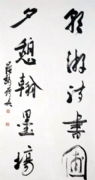 朝游诗书圃
夕憩翰墨场